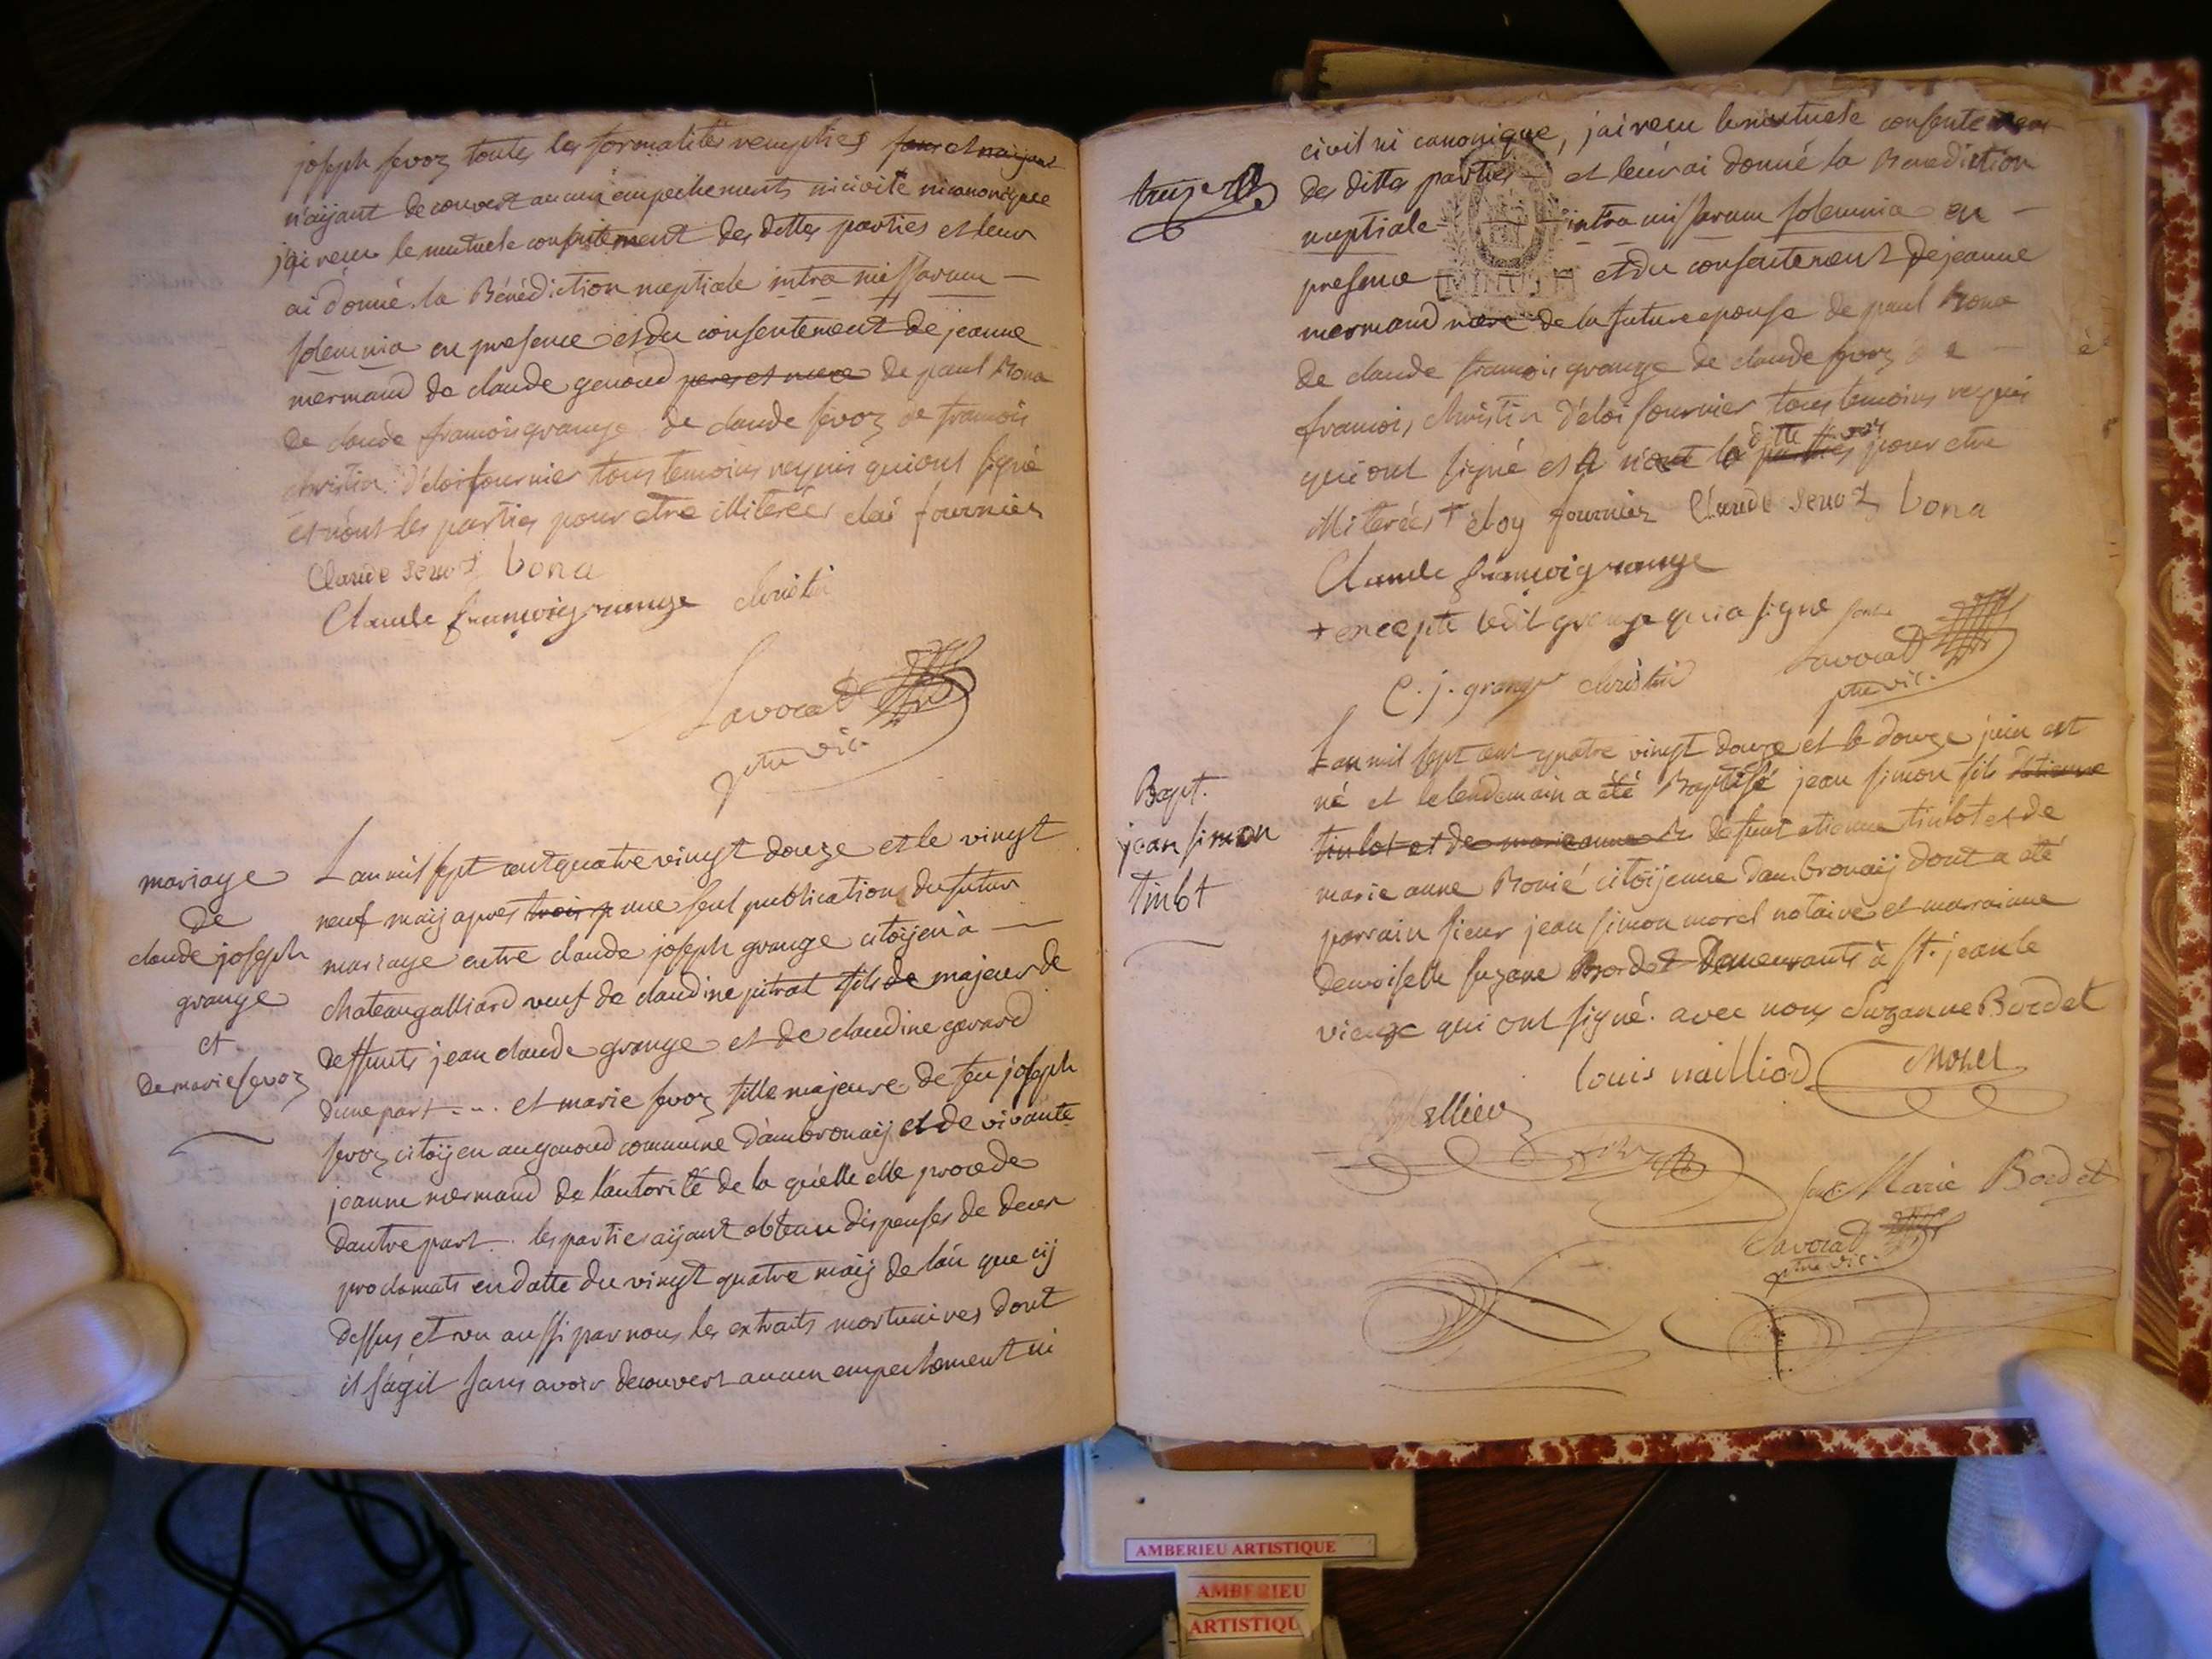 joseph sevoz toutes les formalités remplies sans et naijant
n'aijant decouvert aucuns empechements ni civile ni canonique
j'ai recu le mutuele consentement des dittes parties et leur
ai donné la Bénédiction nuptiale intra missarum —
solemnia en presence et du consentement de jeanne
mermand de claude genoud peres et mere de paul Bona
de claude francois grange de claude sevoz de francois
christin d'eloi fournier tous temoins requis qui ont signé
et n'ont les parties pour etre illiterées eloi fournier
Claude sevoz bona
Claude françois grange christin
Lavocat
ptre vic.
mariage
de
claude joseph
grange
et
de marie sevoz
L'an mil sept cent quatre vingt douze et le vingt
neuf maij apres trois p une seul publication du futur
mariage entre claude joseph grange citoijen à —
chateaugalliard veuf de claudine pitrat fils de majeur de
deffunts jean claude grange et de claudine gerard
d'une part - .. et marie sevoz fille majeure de feu joseph
sevoz citoijen au genoud commune d'ambronaij et de vivante
jeanne mermand de l'autorité de la quelle elle procede
d'autre part .. les parties aijant obtenu dispenses de deux
proclamats en datte du vingt quatre maij de l'an que cij
dessus et vu aussi par nous les extraits mortuaires dont
il s'agit sans avoir decouvert aucun empechement ni
treize
civil ni canonique, j'ai recu le mutuele consentement
des dittes parties et leur ai donné la Benediction
nuptiale intra missarum solemnia en —
presence et du consentement de jeanne
MINUTE
mermand mere de la future epouse de paul Bona
de claude francois grange de claude sevoz de —
francois christin d'eloi fournier tous temoins requis
qui ont signé et n'ont les ditte parties pour etre
illiterées + eloy fournier Claude sevoz bona
Claude françois grange
+ excepte ledit grange qui a signé
C. j. grange christin Lavocat
ptre vic.
Bapt.
jean simon
Tinlot
L'an mil sept cent quatre vingt douze et le douze juin est
né et le lendemain a été Baptisé jean simon fils d'etienne
tinlot et de marieanne B defunt etienne tinlot et de
marie anne Bonié citoijenne d'ambronaij dont a été
parrain sieur jean simon morel notaire et marraine
demoiselle suzane Bordet demeurants à st. jean le
vieux qui ont signé. avec nous Suzanne Bordet
louis vailliod Morel
Marie Bordet
Lavocat
ptre vic.
AMBERIEU ARTISTIQUE
AMBERIEU
ARTISTIQU